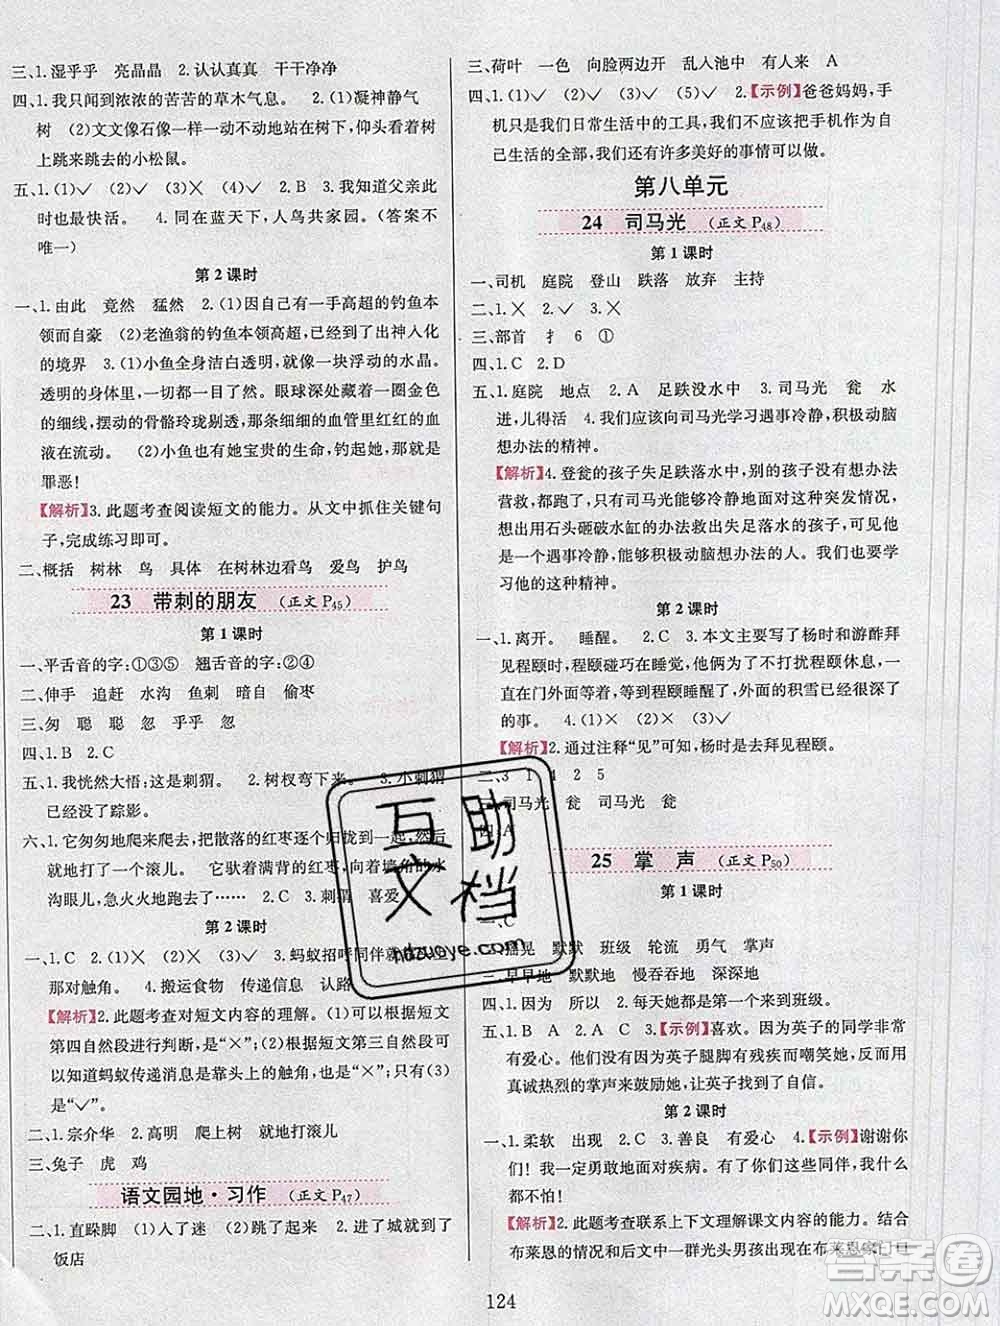 三、1.湿乎乎　亮晶晶　2.认认真真　干干净净
四、1.我只闻到浓浓的苦苦的草木气息。　2.(1)凝神静气
树　(2)文文像石像一样一动不动地站在树下，仰头看树
上跳来跳去的小松鼠。
五、1.(1)✓　(2)✓　(3)×　(4)✓　2.B　3.我知道父亲此
时也最快活。　4.同在蓝天下，人鸟共家园。(答案不
唯一)
第 2 课时
一、1.由此　竟然　猛然　2.(1)因自己有一手高超的钓鱼本
领而自豪　(2)老渔翁的钓鱼本领高超，已经到了出神入化
的境界　3.(1)小鱼全身洁白透明，就像一块浮动的水晶。
透明的身体里，一切一目了然。眼球深处藏着一圈金色
的细线，摆动的骨骼玲珑剔透，那条细细的血管里红红的血
液在流动。　(2)小鱼也有她宝贵的生命，钓起她，就是
罪恶!
【解析】3. 此题考查阅读短文的能力。从文中抓住关键句
子，完成练习即可。
二、概括　树林　鸟　具体　在树林边看鸟　爱鸟　护鸟
23　带刺的朋友　(正文 P45)
第 1 课时
一、平舌音的字:①③⑤　翘舌音的字:②④
二、伸手　追赶　水沟　鱼刺　暗自　偷枣
三、匆　聪　聪　忽　乎乎　忽
四、1.B　2.C
五、1.我恍然大悟:这是刺猬。　2.树杈弯下来。　3.小刺猬
已经没了踪影。
六、1.它匆匆地爬来爬去，把散落的红枣逐个归拢到一起，然后
就地打了一个滚儿。　它驮着满背的红枣，向着墙角的水
沟眼儿，急火火地跑去了……　2.B　3.刺猬　喜爱
第 2 课时
一、1.C　2.(1)×　(2)×　(3)✓　3.蚂蚁招呼同伴就
那对触角。　4.搬运食物　传递信息　认路
【解析】2.此题考查对短文内容的理解。(1)可以根据短文
第四自然段进行判断，是“×”;(2)根据短文第三自然段
可以知道蚂蚁传递消息是靠头上的触角，是“×”;只有(3)
是“✓”。
二、1.宗介华　2.高明　爬上树　就地打滚儿
三、兔子　虎　鸡
语文园地·习作　(正文 P47)
二、1.直跺脚　(1)入了迷　(2)跳了起来　2.进了城就到了
饭店
三、荷叶　一色　向脸两边开　乱入池中　有人来　A
四、1.(1)✓　(2)✓　(3)✓　(5)✓　2.【示例】爸爸妈妈，手
机只是我们日常生活中的工具，我们不应该把手机作为自
己生活的全部，我们还有许多美好的事情可以做。
第八单元
24　司马光　(正文 P48)
第 1 课时
一、司机　庭院　登山　跌落　放弃　主持
二、1.×　2.✓　3.×
三、部首　扌　6　①
四、1.C　2.D
五、1.庭院　地点　2.A　足跌没水中　3.司马光　瓮　水
迸，儿得活　4.我们应该向司马光学习遇事冷静，积极动脑
想办法的精神。
【解析】4.登瓮的孩子失足跌落水中，别的孩子没有想办法
营救，都跑了，只有司马光能够冷静地面对这种突发情况，
想出用石头砸破水缸的办法救出失足落水的孩子，可以看
出他是一个遇事冷静、能够积极动脑想办法的人。我们要学
习他的这种精神。
第 2 课时
一、1.离开。　睡醒。　2.C　3.本文主要写了杨时和游酢拜
见程颐时，程颐碰巧在睡觉，他们为了不打扰程颐休息，一
直在门外面等着，等到程颐睡醒了，外面的积雪已经很深了
的事。　4.(1)×　(2)×　(3)✓
【解析】2.通过注释“见”可知，杨时是去拜见程颐。
二、3　1　4　2　5
三、司马光　瓮　司马光　瓮
四、A
25　掌　声　(正文 P50)
第 1 课时
一、C
二、摇晃　默默　班级　轮流　勇气　掌声
三、早早地　默默地　慢吞吞地　深深地
四、1.因为　所以　2.每天她都是第一个来到班级。
五、1.B　A　2.A　C　3.【示例】喜欢。因为英子的同学非常
有爱心。他们没有因为英子腿脚有残疾而嘲笑她，反而用
真诚热烈的掌声来鼓励她，让英子找到了自信。
第 2 课时
一、1.柔软　出现　2.C　3.善良　有爱心　4.【示例】谢谢你
们! 我一定勇敢地面对疾病。有你们这些同伴，我感到
很幸福!
【解析】2. 此题考查联系上下文理解课文内容的能力。结合
布莱恩的情况和后文中一群光头男孩出现在布莱恩家门口
124
互助文档
hdzuoye.com
答案圈
MXQE.COM